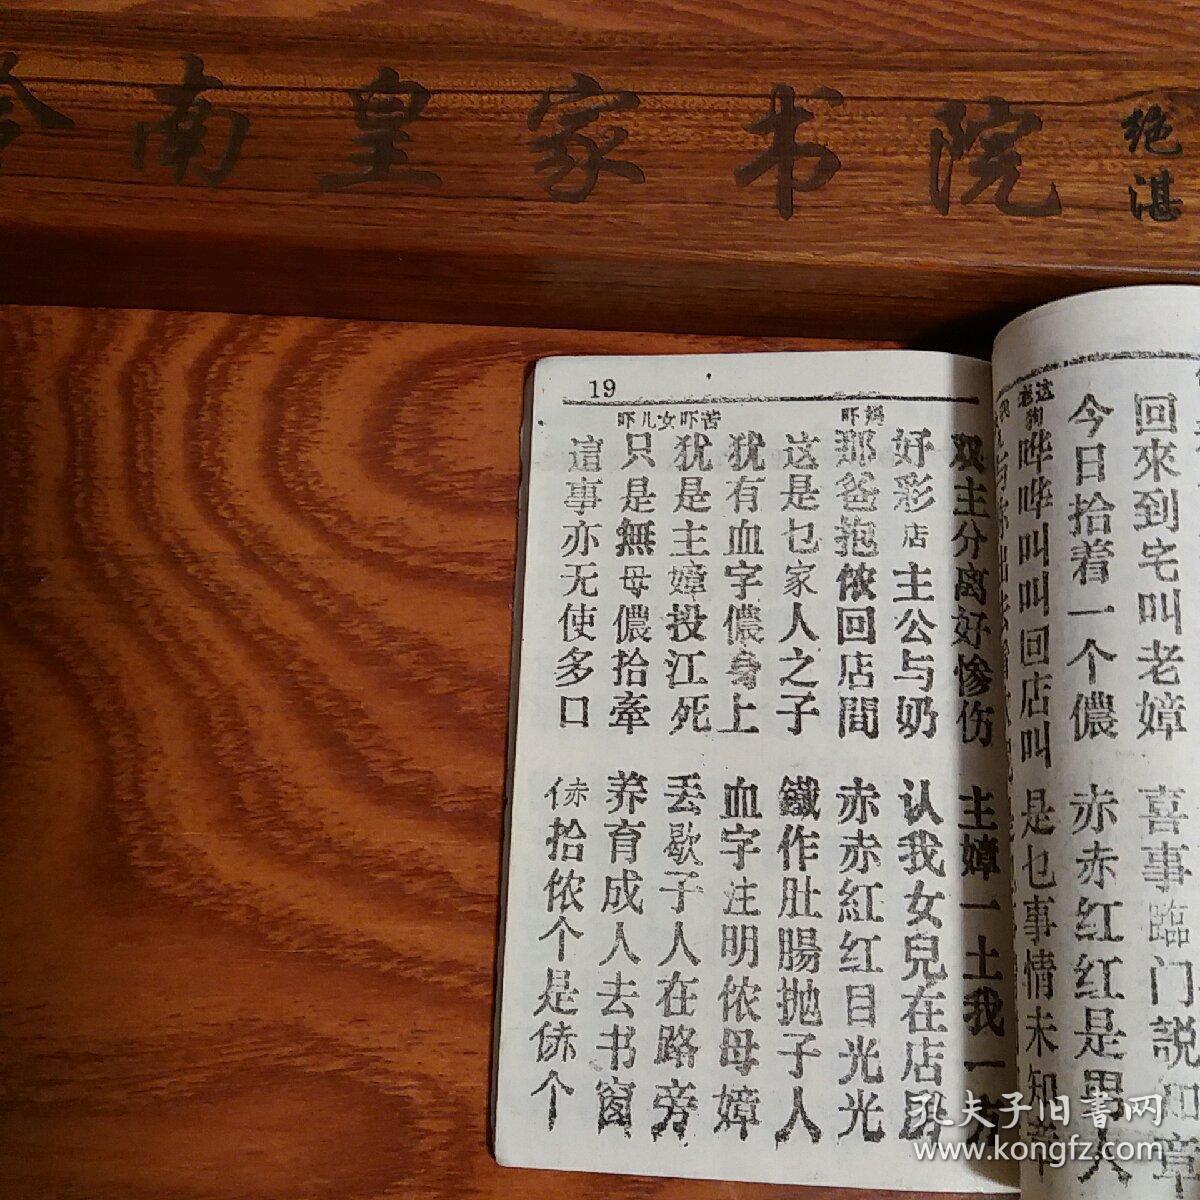 南皇家书院
绝
湛
19
苦吓女儿吓
妈吓
回來到宅叫老嫜
喜事臨门説
今日拾着一个儂
赤赤红红是男人
哗哗叫叫回店叫
是乜事情未知
双主分离好惨伤
主嫜一土我一
好彩店主公与奶
认我女兒在店
那爸抱侬回店間
赤赤紅红目光光
这是乜家人之子
鐵作肚腸抛子人
犹有血字儂身上
血字注明侬母嫜
犹是主嫜投江死
丢歇子人在路旁
只是無母儂拾牽
养育成人去书窗
這事亦无使多口
㑉拾侬个是㑉个
孔夫子旧书网
www.kongfz.com